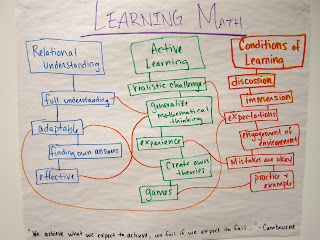 LEARNING MATH
Relational
Understanding
full understanding
adaptable
finding own answers
effective
Active
Learning
realistic challenge
generalize
mathematical
thinking
experience
create own
theories
games
Conditions of
Learning
discussion
immersion
expectations
engagement of
environment
Mistakes are okay
practice +
example
"We achieve what we expect to achieve; we fail if we expect to fail..." - Cambourne